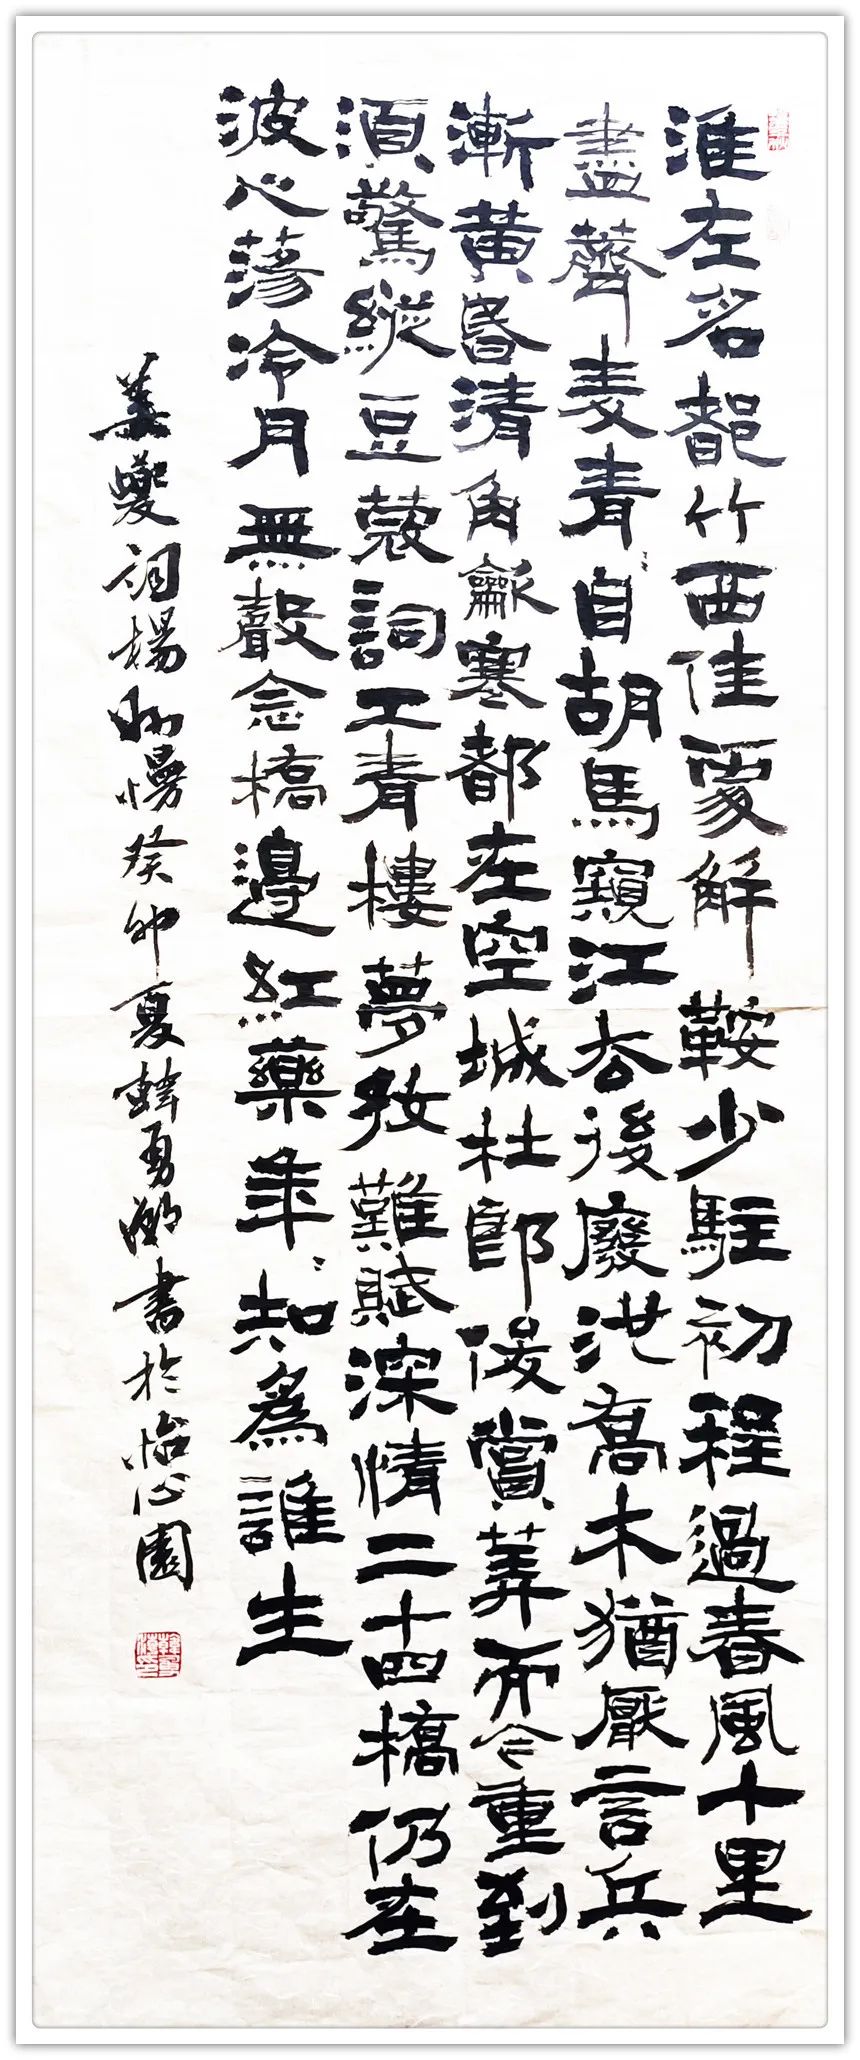 淮左名都竹西佳處解鞍少駐初程過春風十里
盡薺麦青〻自胡馬窺江去後廢池喬木猶厭言兵
漸黄昏清角龡寒都在空城杜郎俊賞算而今重到
須驚縱豆蔻詞工青樓夢好難賦深情二十四橋仍在
波心蕩冷月無聲念橋邊紅藥年〻知爲誰生
姜夔詞揚州慢癸卯夏韓勇潮書於怡心園